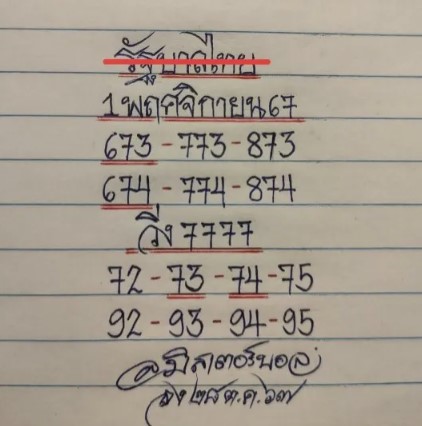 รัฐบาลไทย
1 พฤศจิกายน 67
673 - 773 - 873
674 - 774 - 874
วิ่ง 7777
72 - 73 - 74 - 75
92 - 93 - 94 - 95
๒๘ ต.ค. ๖๗